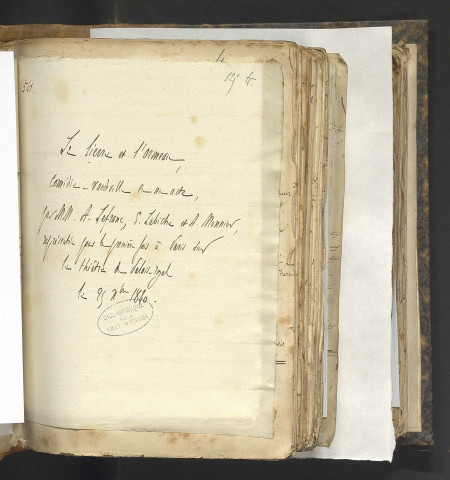 541.
Le lierre et l'ormeau,
comédie-vaudeville en un acte,
par MM. A. Lefranc, E. Labiche et A. Monnier,
représentée pour la première fois à Paris sur
le théâtre du Palais royal
le 25 Xbre 1840.
BIBLIOTHEQUE
DE LA
VILLE